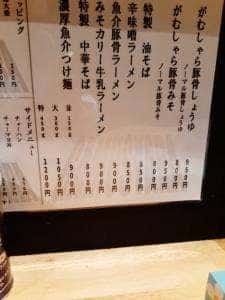 がむしゃら豚骨しょうゆ 950円
ノーマル豚骨しょうゆ 850円
がむしゃら豚骨みそ 950円
ノーマル豚骨みそ 850円
特製 油そば
辛味噌ラーメン 900円
魚介豚骨ラーメン
みそカリー牛乳ラーメン 900円
特製 中華そば 800円
濃厚魚介つけ麺
並 900円
大 1050円
特 1200円
ッピング
サイドメニュー
チャーハン
チャーマヨ丼